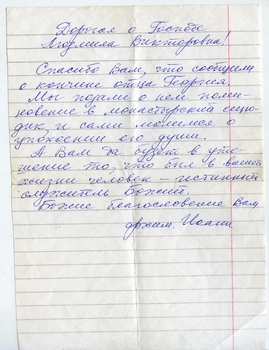 Дорогая о Господе
Людмила Викторовна!
Спасибо Вам, что сообщили
о кончине отца Георгия.
Мы подали о нем поми-
новение в монастырский сино-
дик, и сами молимся о
упокоении его души.
А Вам да будет в уте-
шение то, что был в вашей
жизни человек – истинный
служитель Божий.
Божие благословение Вам
архим. Иоанн